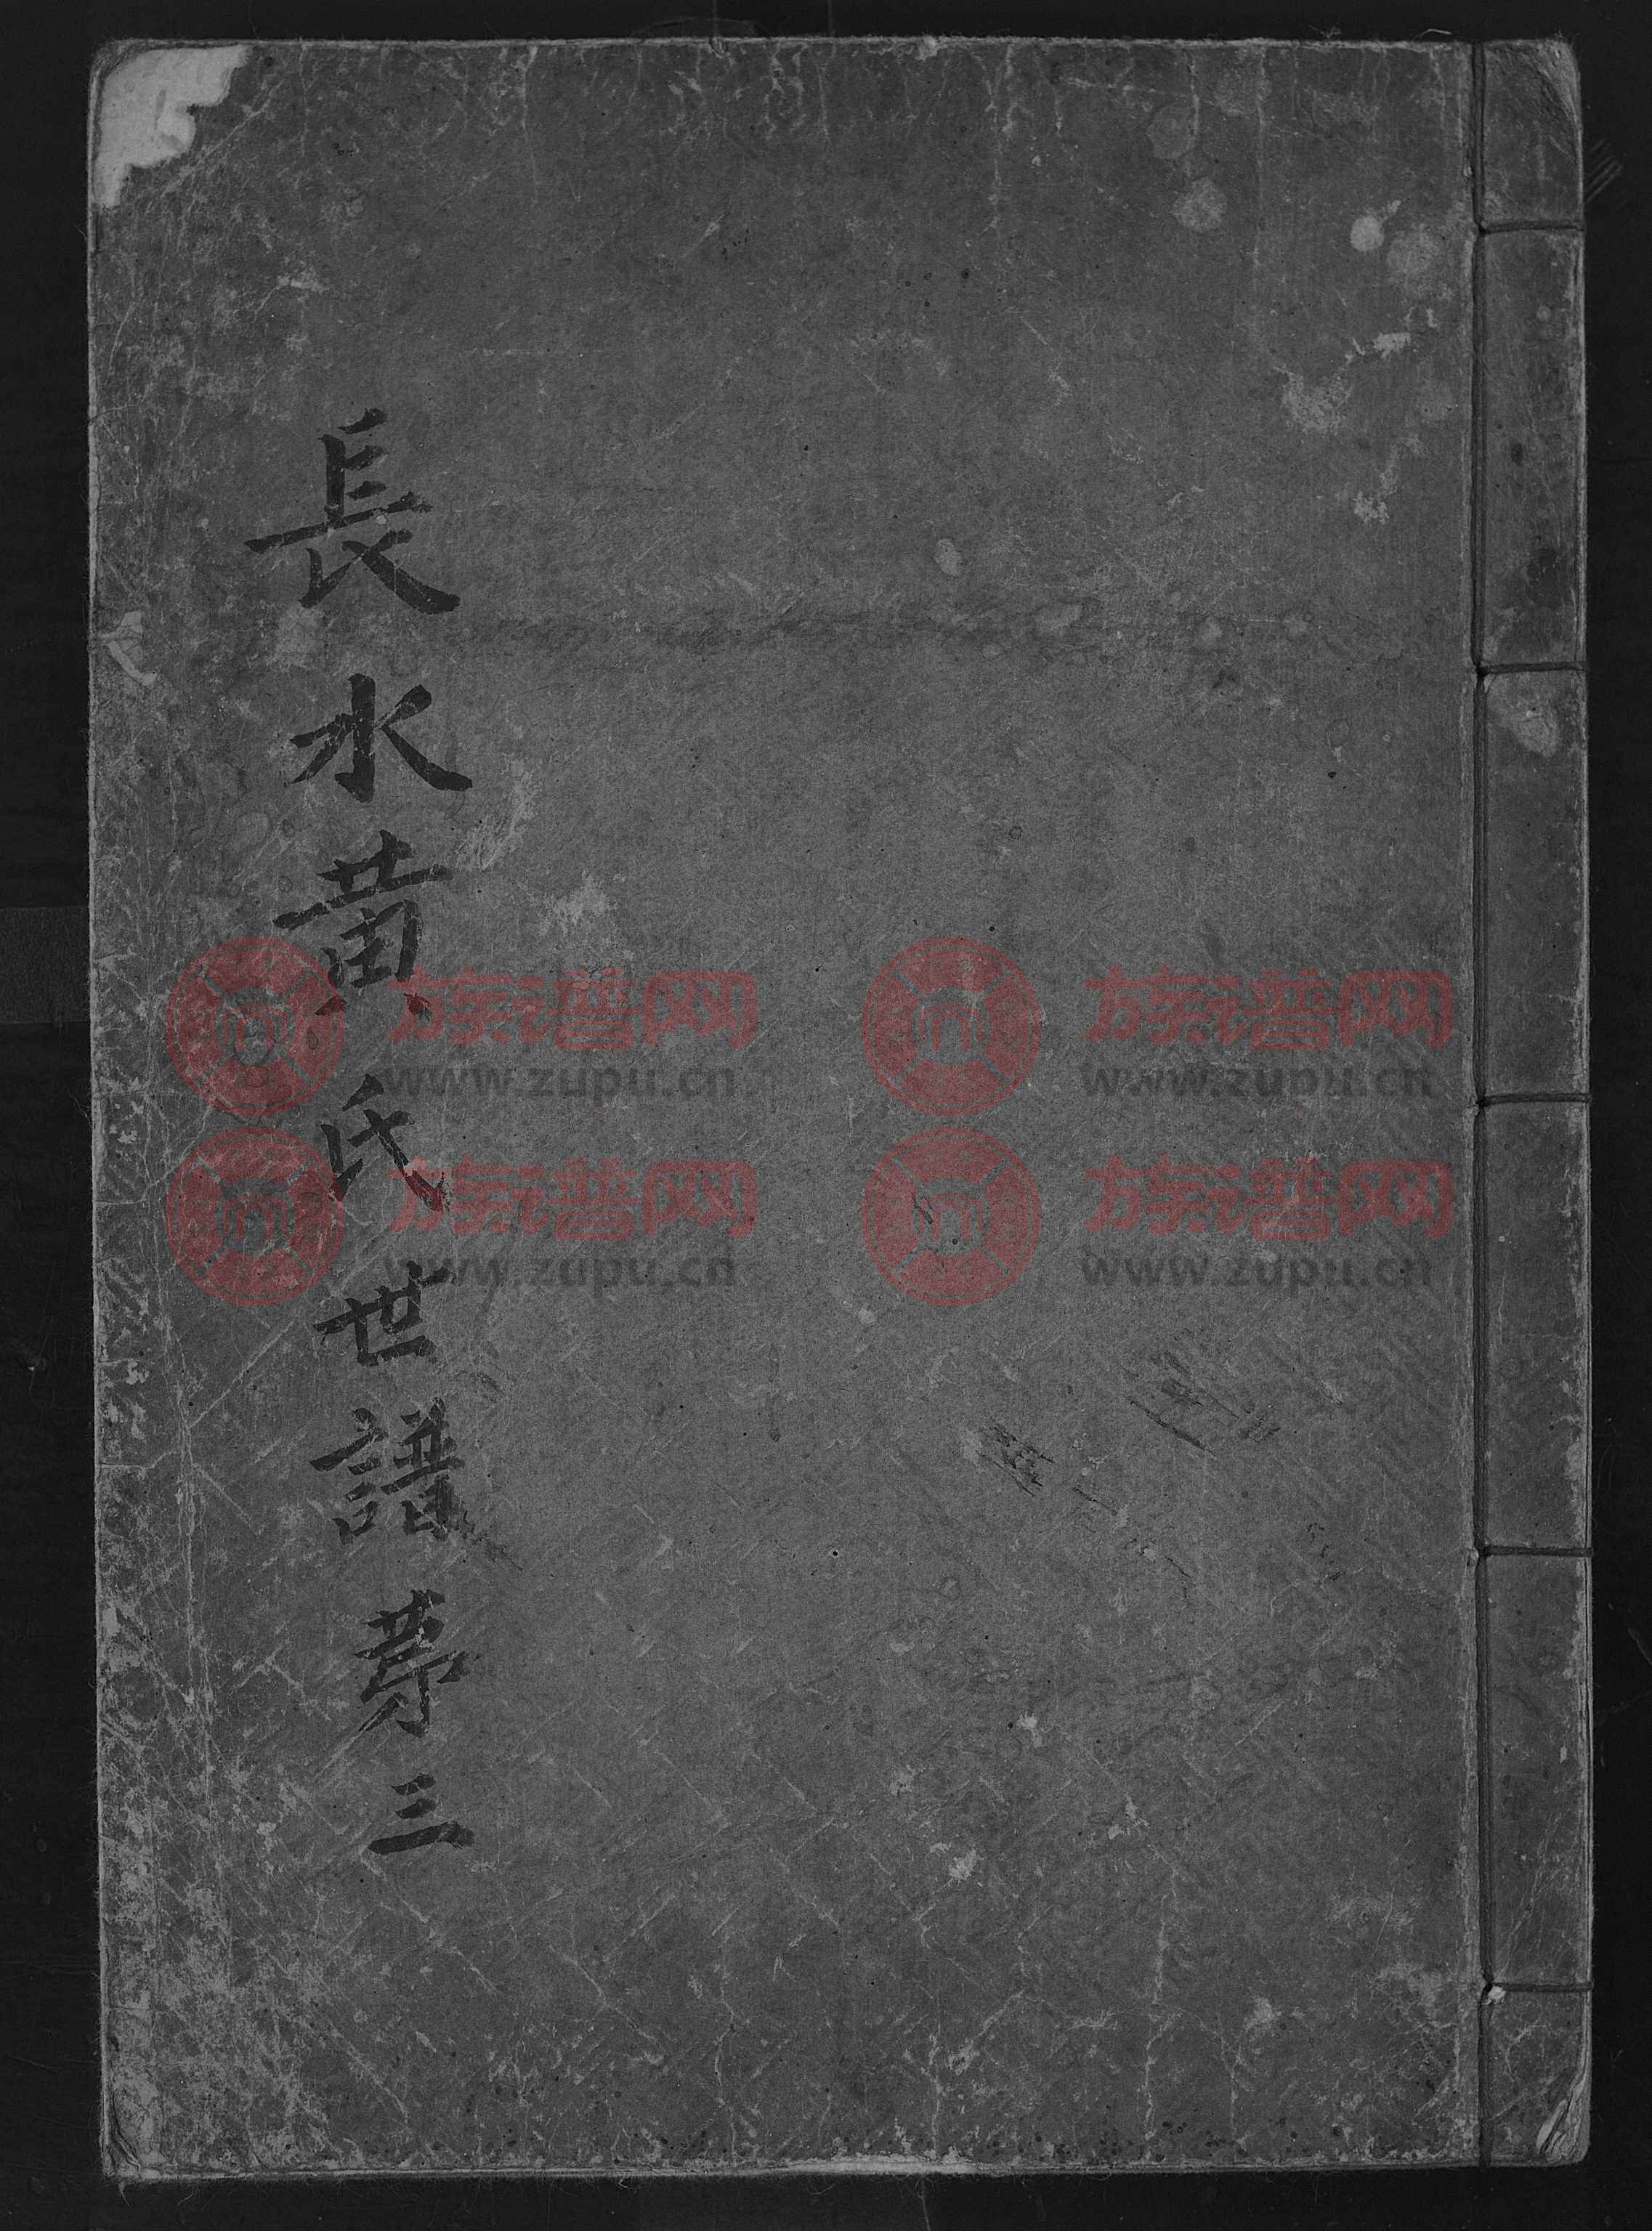 長水黄氏世譜苐三
族谱网
www.zupu.cn
族谱网
www.zupu.cn
族谱网
www.zupu.cn
族谱网
www.zupu.cn